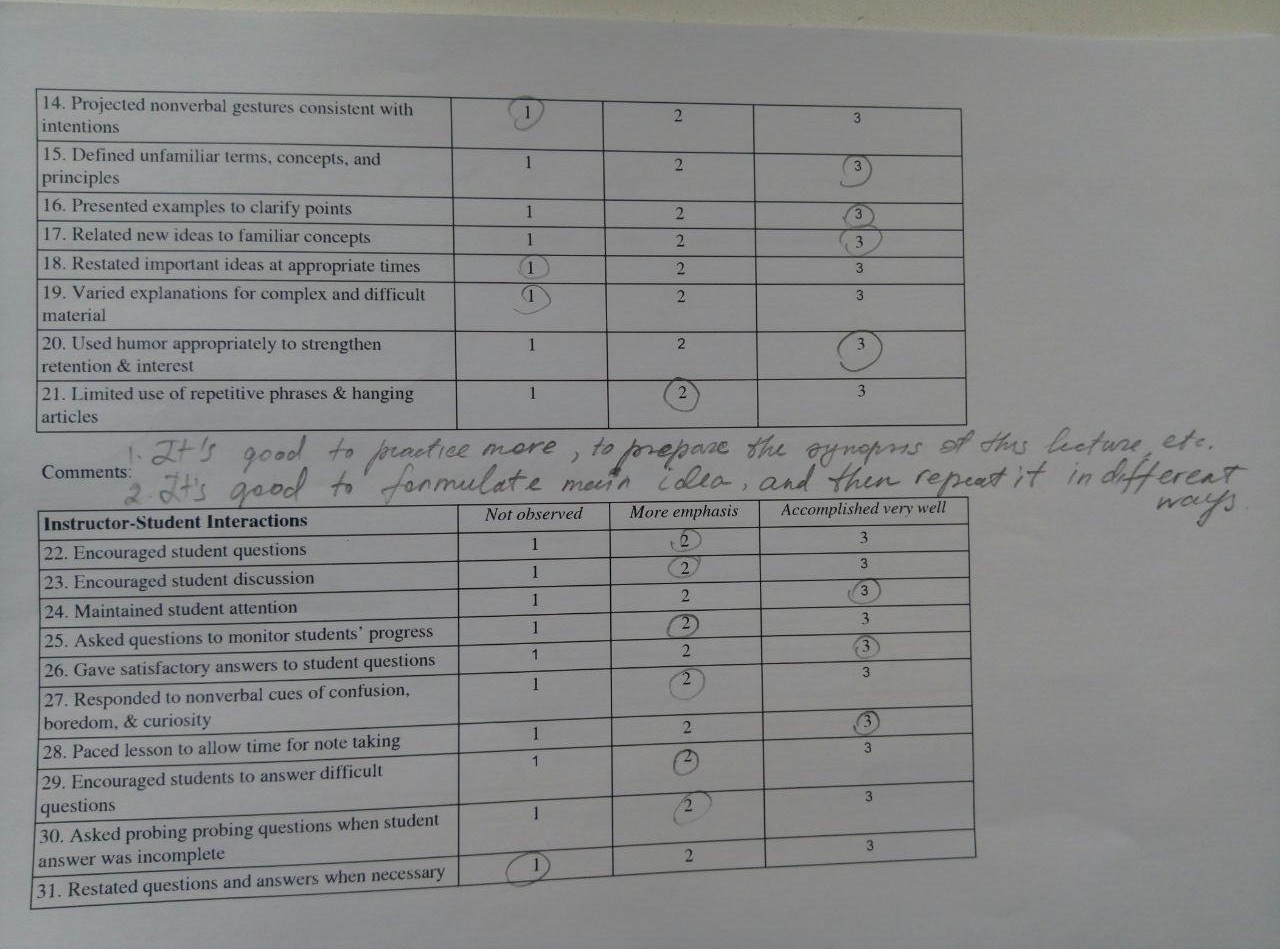 14. Projected nonverbal gestures consistent with 1 2 3
intentions
15. Defined unfamiliar terms, concepts, and 1 2 3
principles
16. Presented examples to clarify points 1 2 3
17. Related new ideas to familiar concepts 1 2 3
18. Restated important ideas at appropriate times 1 2 3
19. Varied explanations for complex and difficult 1 2 3
material
20. Used humor appropriately to strengthen 1 2 3
retention & interest
21. Limited use of repetitive phrases & hanging 1 2 3
articles
1. It's good to practice more, to prepare the synopsis of this lecture, etc.
Comments:
2. It's good to formulate main idea, and then repeat it in different
ways.
Instructor-Student Interactions Not observed More emphasis Accomplished very well
22. Encouraged student questions 1 2 3
23. Encouraged student discussion 1 2 3
24. Maintained student attention 1 2 3
25. Asked questions to monitor students' progress 1 2 3
26. Gave satisfactory answers to student questions 1 2 3
27. Responded to nonverbal cues of confusion, 1 2 3
boredom, & curiosity
28. Paced lesson to allow time for note taking 1 2 3
29. Encouraged students to answer difficult 1 2 3
questions
30. Asked probing probing questions when student 1 2 3
answer was incomplete
31. Restated questions and answers when necessary 1 2 3